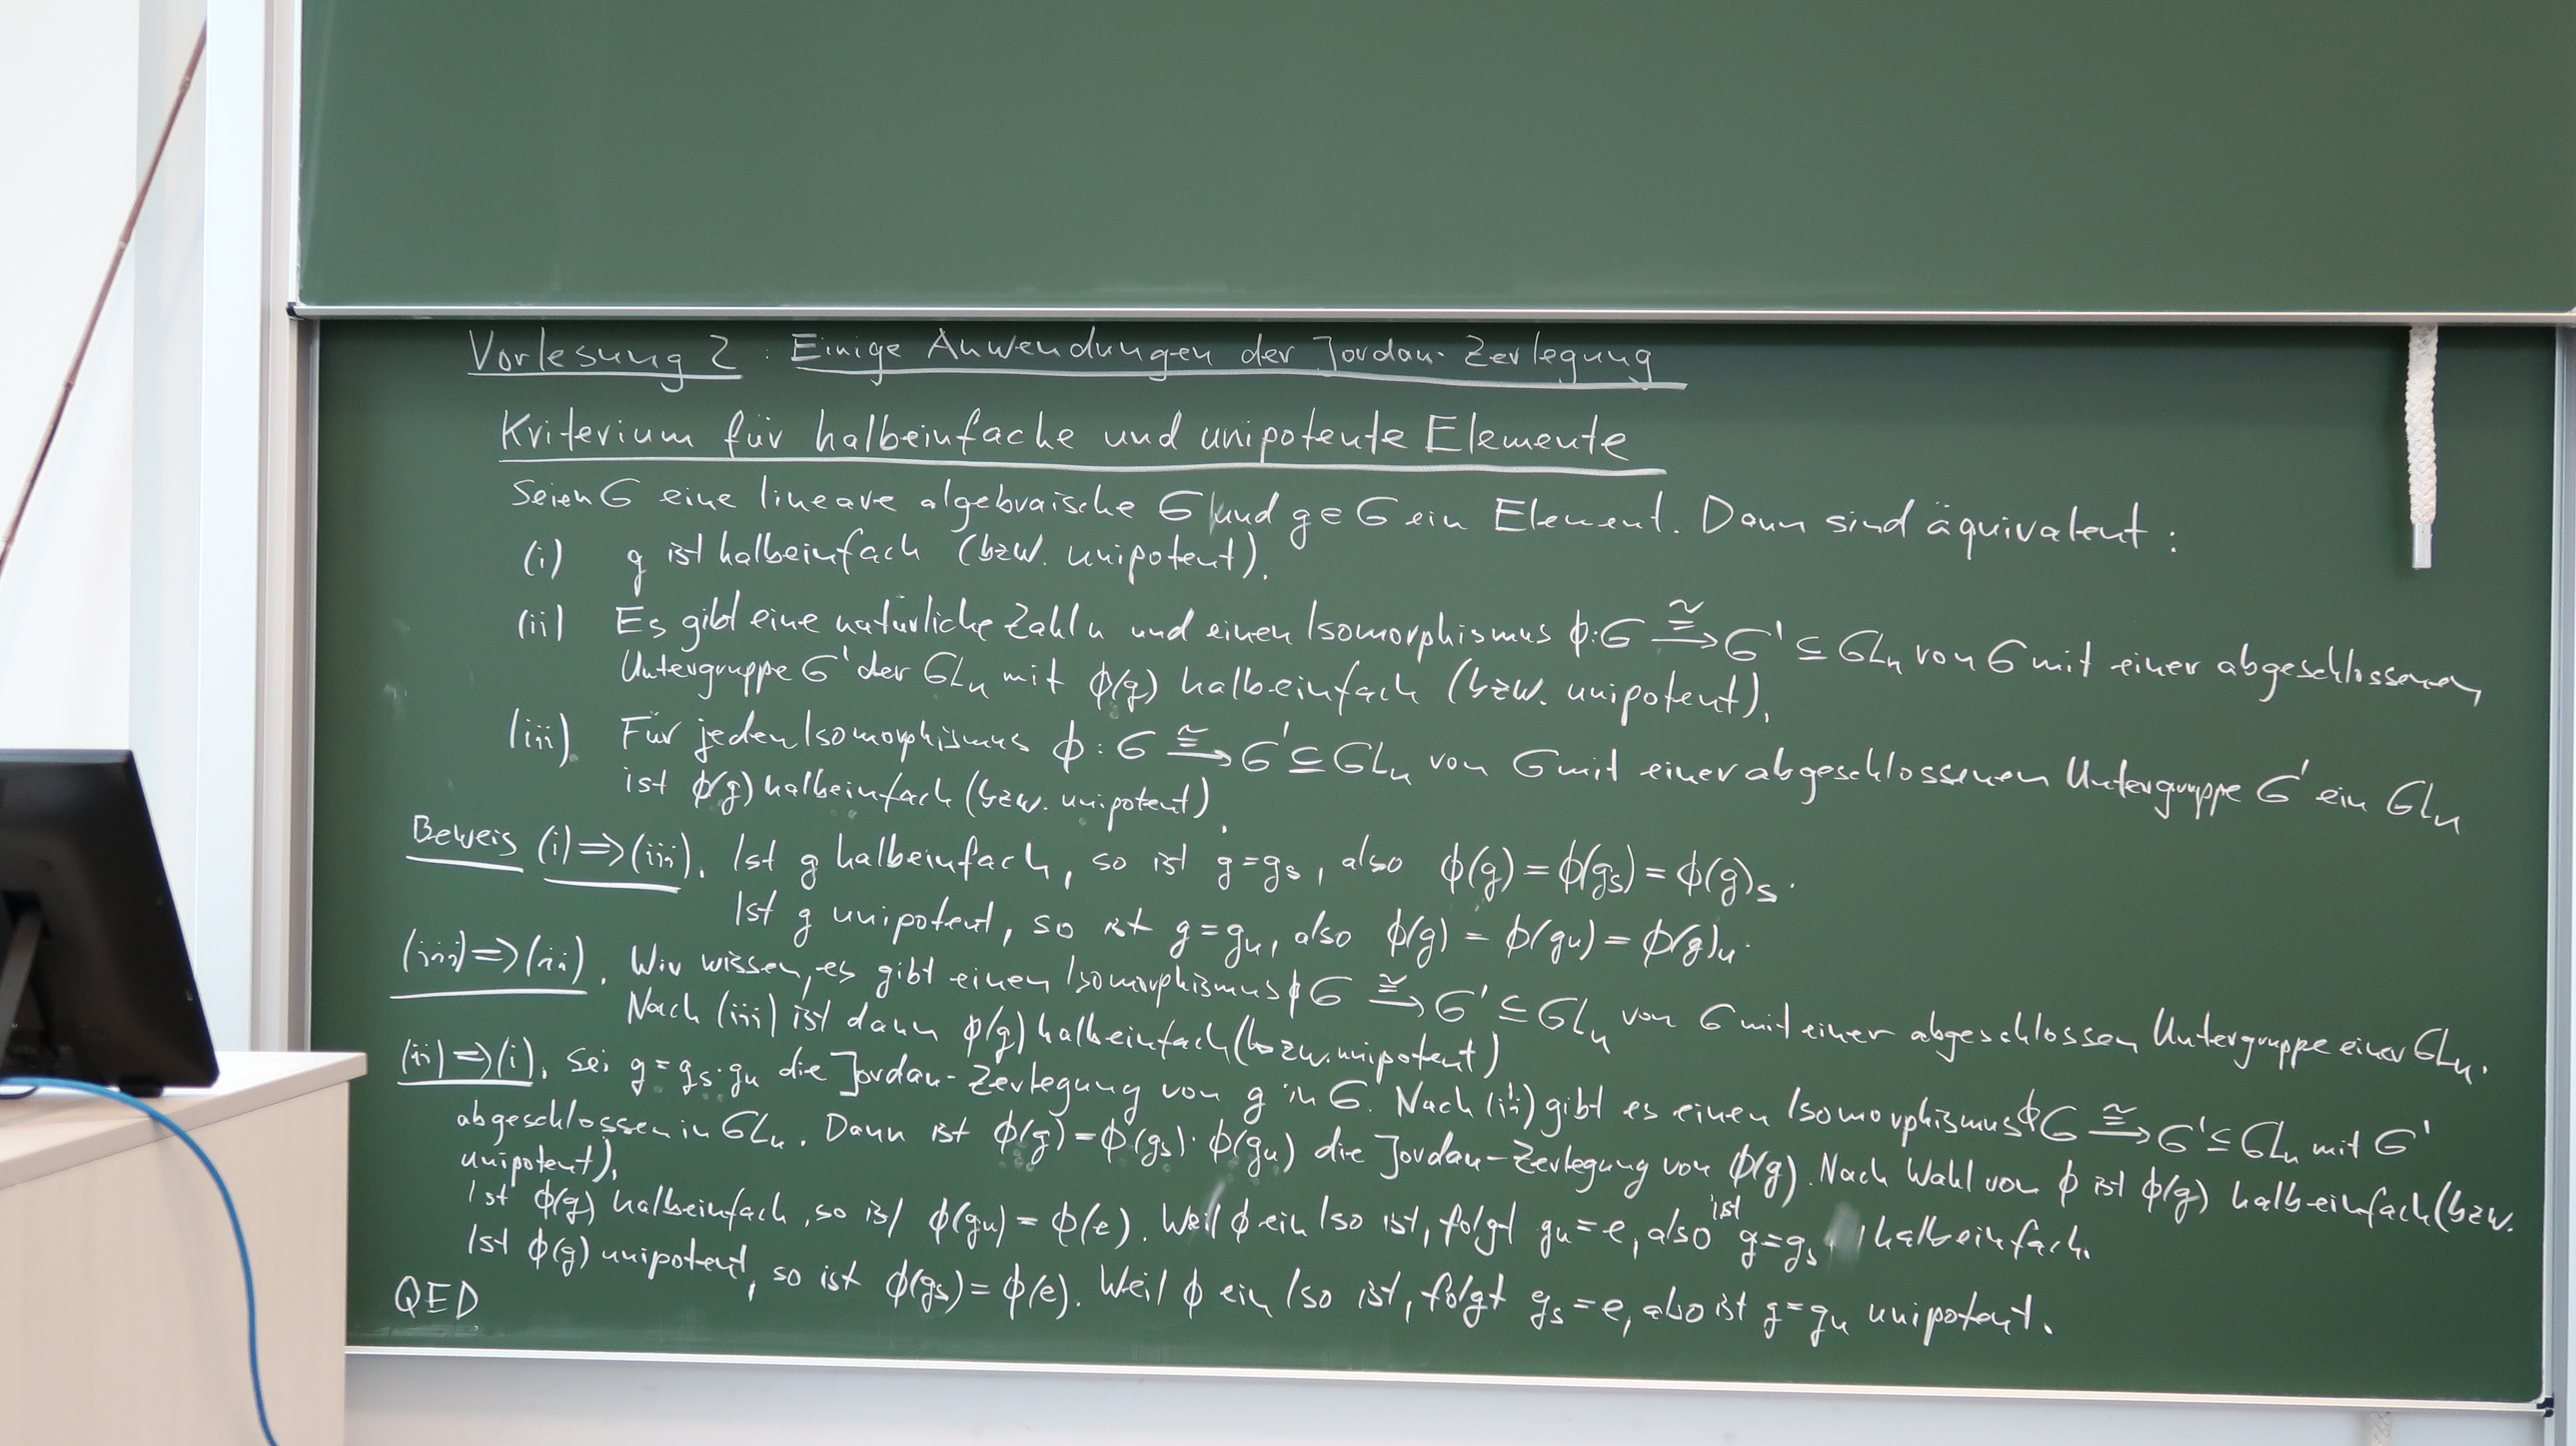 Vorlesung 2 : Einige Anwendungen der Jordan-Zerlegung
Kriterium für halbeinfache und unipotente Elemente
Seien G eine lineare algebraische G und g∈G ein Element. Dann sind äquivalent:
(i) g ist halbeinfach (bzw. unipotent).
(ii) Es gibt eine natürliche Zahl n und einen Isomorphismus ϕ:G ≅→ G' ⊆ GLn von G mit einer abgeschlossenen
Untergruppe G' der GLn mit ϕ(g) halbeinfach (bzw. unipotent).
(iii). Für jeden Isomorphismus ϕ: G ≅→ G' ⊆ GLn von G mit einer abgeschlossenen Untergruppe G' ein GLn
ist ϕ(g) halbeinfach (bzw. unipotent).
Beweis (i)⇒(iii). Ist g halbeinfach, so ist g=gs, also ϕ(g) = ϕ(gs) = ϕ(g)s.
Ist g unipotent, so ist g=gu, also ϕ(g) = ϕ(gu) = ϕ(g)u.
(iii)⇒(ii). Wir wissen, es gibt einen Isomorphismus ϕ G ≅→ G' ⊆ GLn von G mit einer abgeschlossen Untergruppe einer GLn.
Nach (iii) ist dann ϕ(g) halbeinfach (bzw. unipotent)
(ii)⇒(i). Sei g = gs·gu die Jordan-Zerlegung von g in G. Nach (ii) gibt es einen Isomorphismus ϕ G ≅→ G' ⊆ GLn mit G'
abgeschlossen in GLn. Dann ist ϕ(g) = ϕ(gs)·ϕ(gu) die Jordan-Zerlegung von ϕ(g). Nach Wahl von ϕ ist ϕ(g) halbeinfach (bzw.
unipotent).
Ist ϕ(g) halbeinfach, so ist ϕ(gu) = ϕ(e). Weil ϕ ein Iso ist, folgt gu = e, also ist g=gs halbeinfach.
Ist ϕ(g) unipotent, so ist ϕ(gs) = ϕ(e). Weil ϕ ein Iso ist, folgt gs = e, also ist g=gu unipotent.
QED